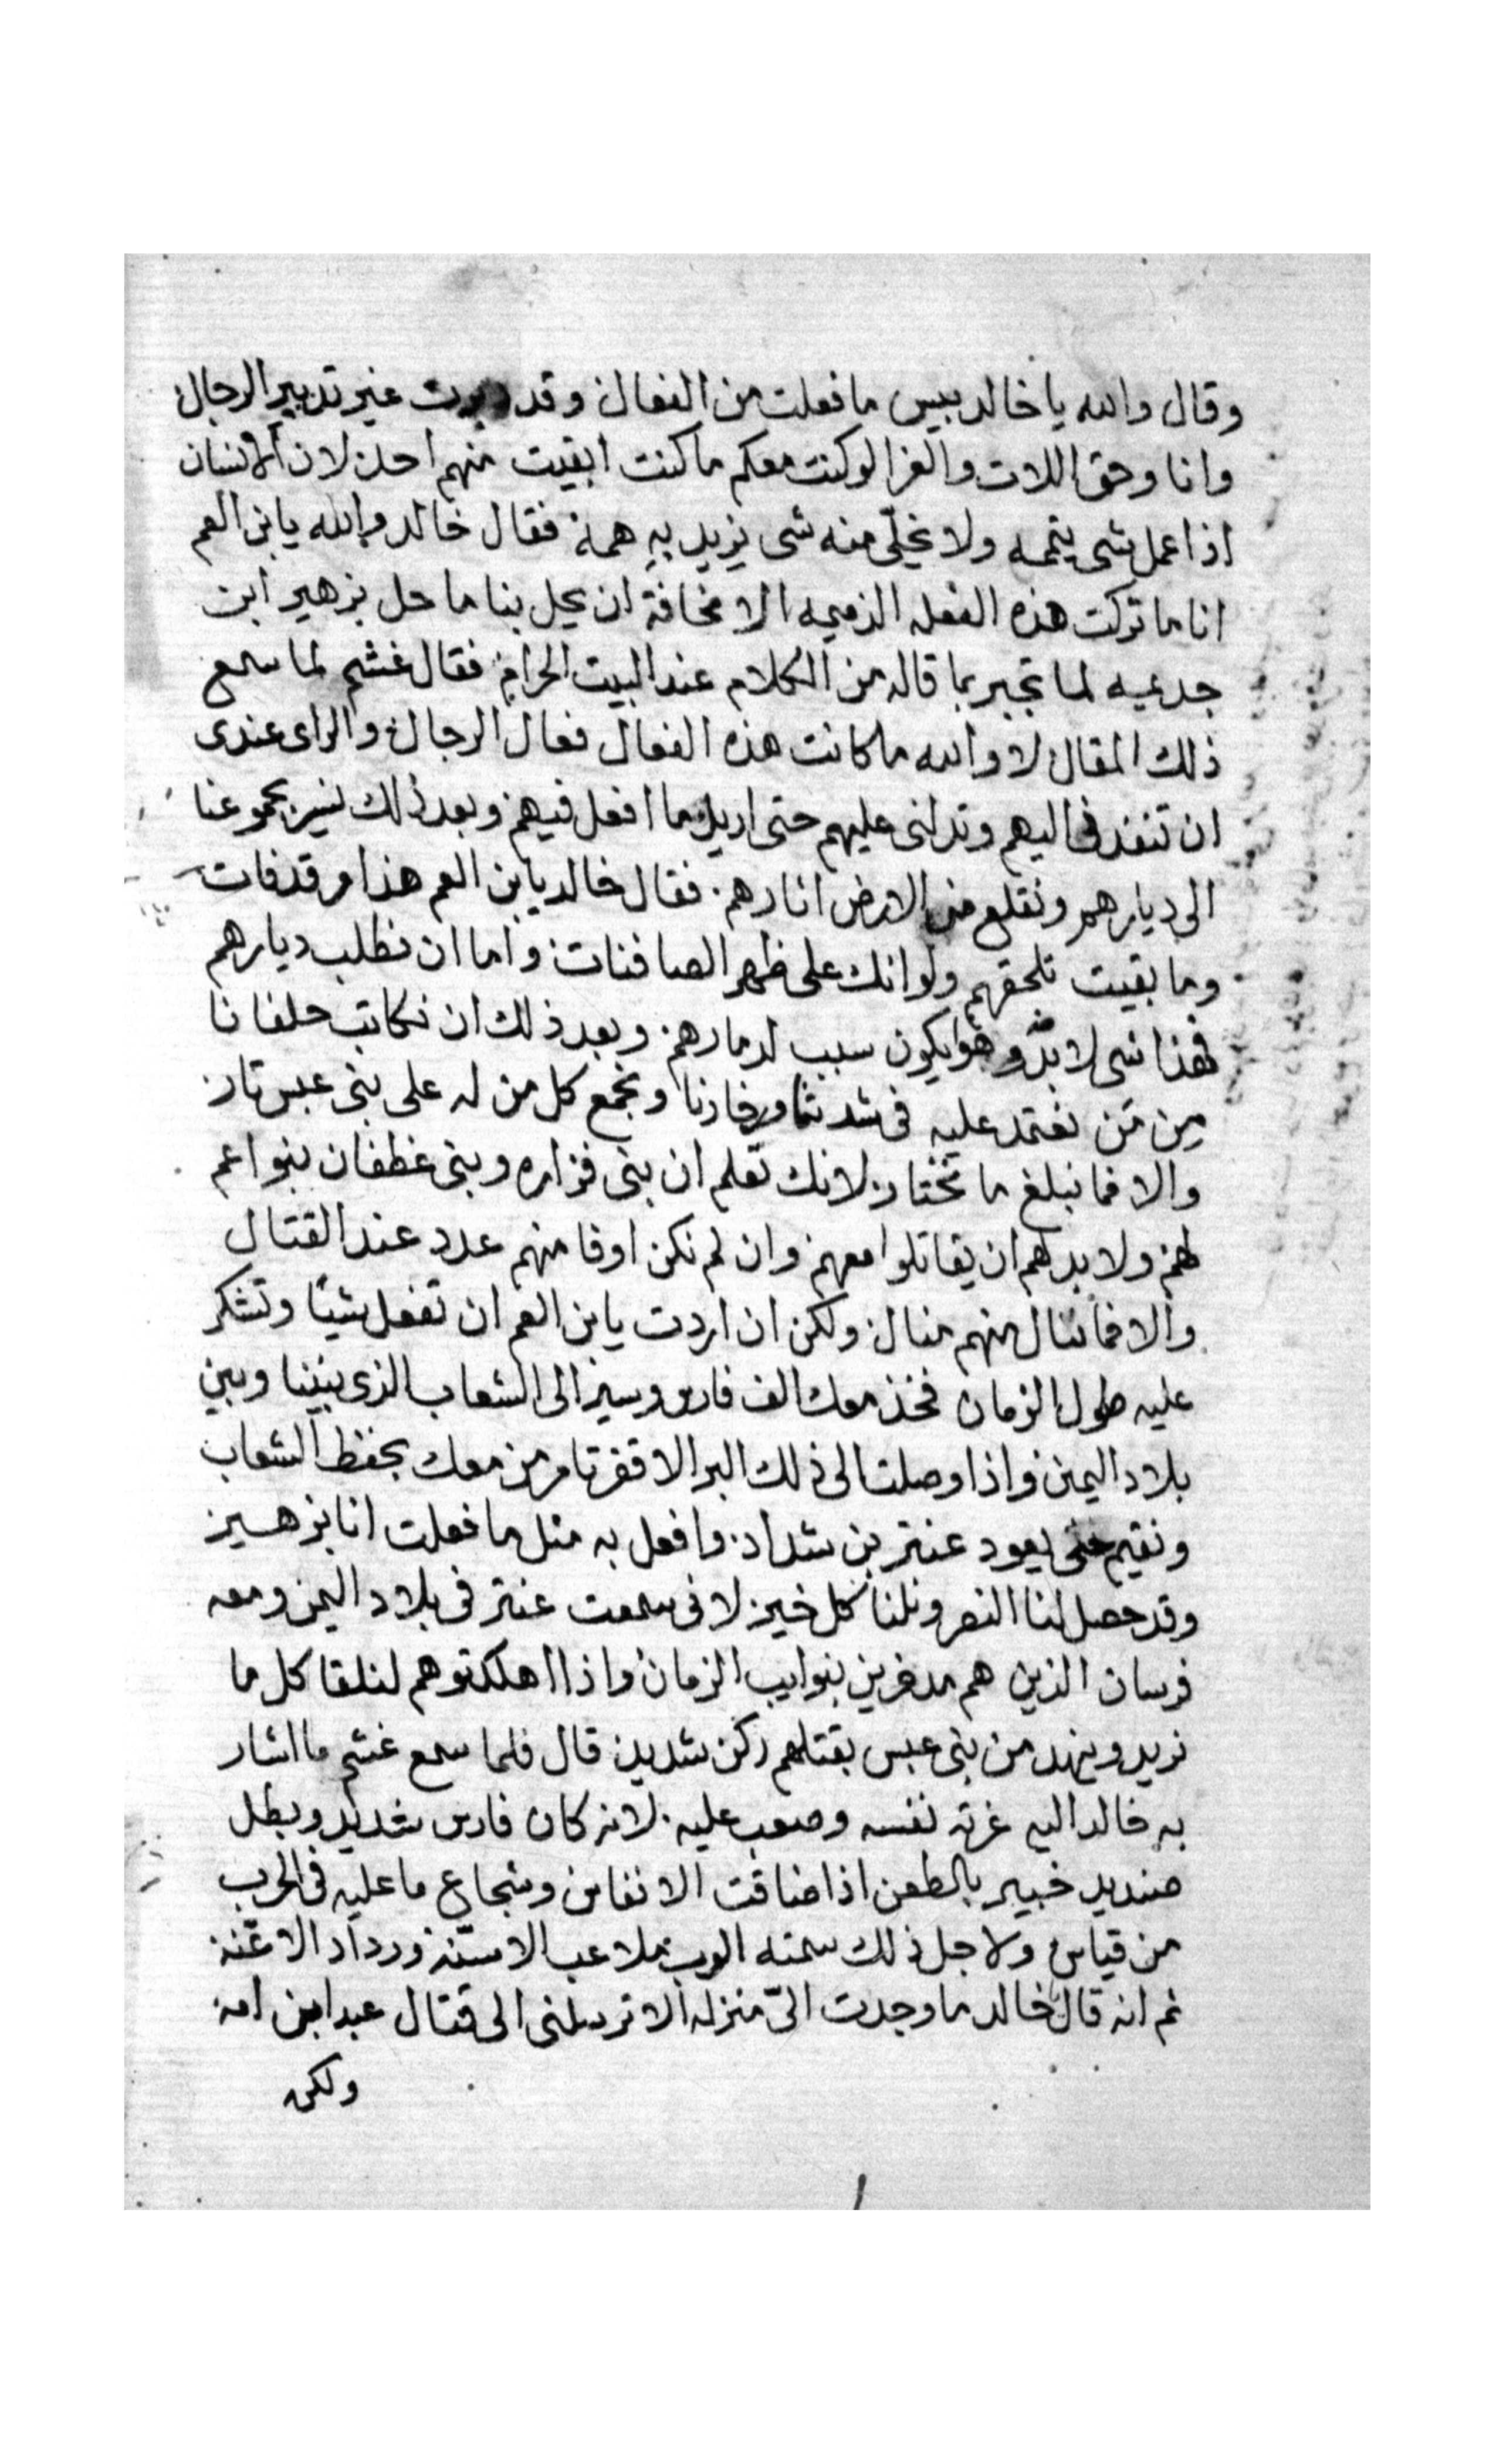 وقال والله يا خالد بيس ما فعلت من الفعال وقد دبرت غير تدبير الرجال
وانا وحق اللات والعزا لو كنت معكم ما كنت ابقيت منهم احد لان الانسان
اذا عمل شي يتمه ولا يخلّي منه شي يزيد بهِ همه فقال خالد والله يابن العم
انا ما تركت هذه الفعله الذميمه الا مخافة ان يحل بنا ما حل بزهير ابن
جديمه لما تجبر بما قاله من الكلام عند البيت الحرام فقال غشم لما سمع
ذلك المقال لا والله ما كانت هذه الفعال فعال الرجال والراى عندى
ان تنفذنى اليهم وتدلنى عليهم حتى اريك ما افعل فيهم وبعد ذلك نسير بجموعنا
الى ديارهم ونقلع من الارض اثارهم. فقال خالد يابن العم هذا امر قد فات
وما بقيت تلحقهم ولو انك على ظهر الصافنات واما ان نطلب ديارهم
فهذا شى لا بدّ وهو يكون سبب لدمارهم. وبعد ذلك ان نكاتب حلفانا
مِن مَن نعتمد عليه فى شدتنا ورخانا ونجمع كل من له على بنى عبس تار
والا فما نبلغ ما نختار لانك تعلم ان بنى فزاره وبنى غطفان بنوا عم
لهم ولا بد لهم ان يقاتلوا معهم وان لم نكن اوفا منهم عدد عند القتال
والا فما ننال منهم منال ولكن ان اردت يابن العم ان تفعل شيئًا وتشكر
عليه طول الزمان فخذ معك الف فارس وسير الى الشعاب الذى بيننا وبين
بلاد اليمن واذا وصلت الى ذلك البر الاقفر تامر من معك بحفظ الشعاب
ونقيم حتى يعود عنتر بن شداد. وافعل به مثل ما فعلت انا بزهير
وقد حصل لنا النصر ونلنا كل خير لانى سمعت عنتر فى بلاد اليمن ومعه
فرسان الذين هم مدخرين لنوايب الزمان واذا اهلكتوهم لنلقا كل ما
نريد وينهد من بنى عبس بقتلهم ركن شديد قال فلما سمع غشم ما اشار
به خالد اليه غرته نفسه وصعب عليه. لانه كان فارس شديد وبطل
صنديد خبير بالطعن اذا ضاقت الانفاس وشجاع ما عليه فى الحرب
من قياس ولاجل ذلك سمته العرب بملاعب الاسنّه ورداد الاعنّه
ثم انه قال خالد ما وجدت الىّ منزله الا ترسلنى الى قتال عبد ابن امه
ولكن